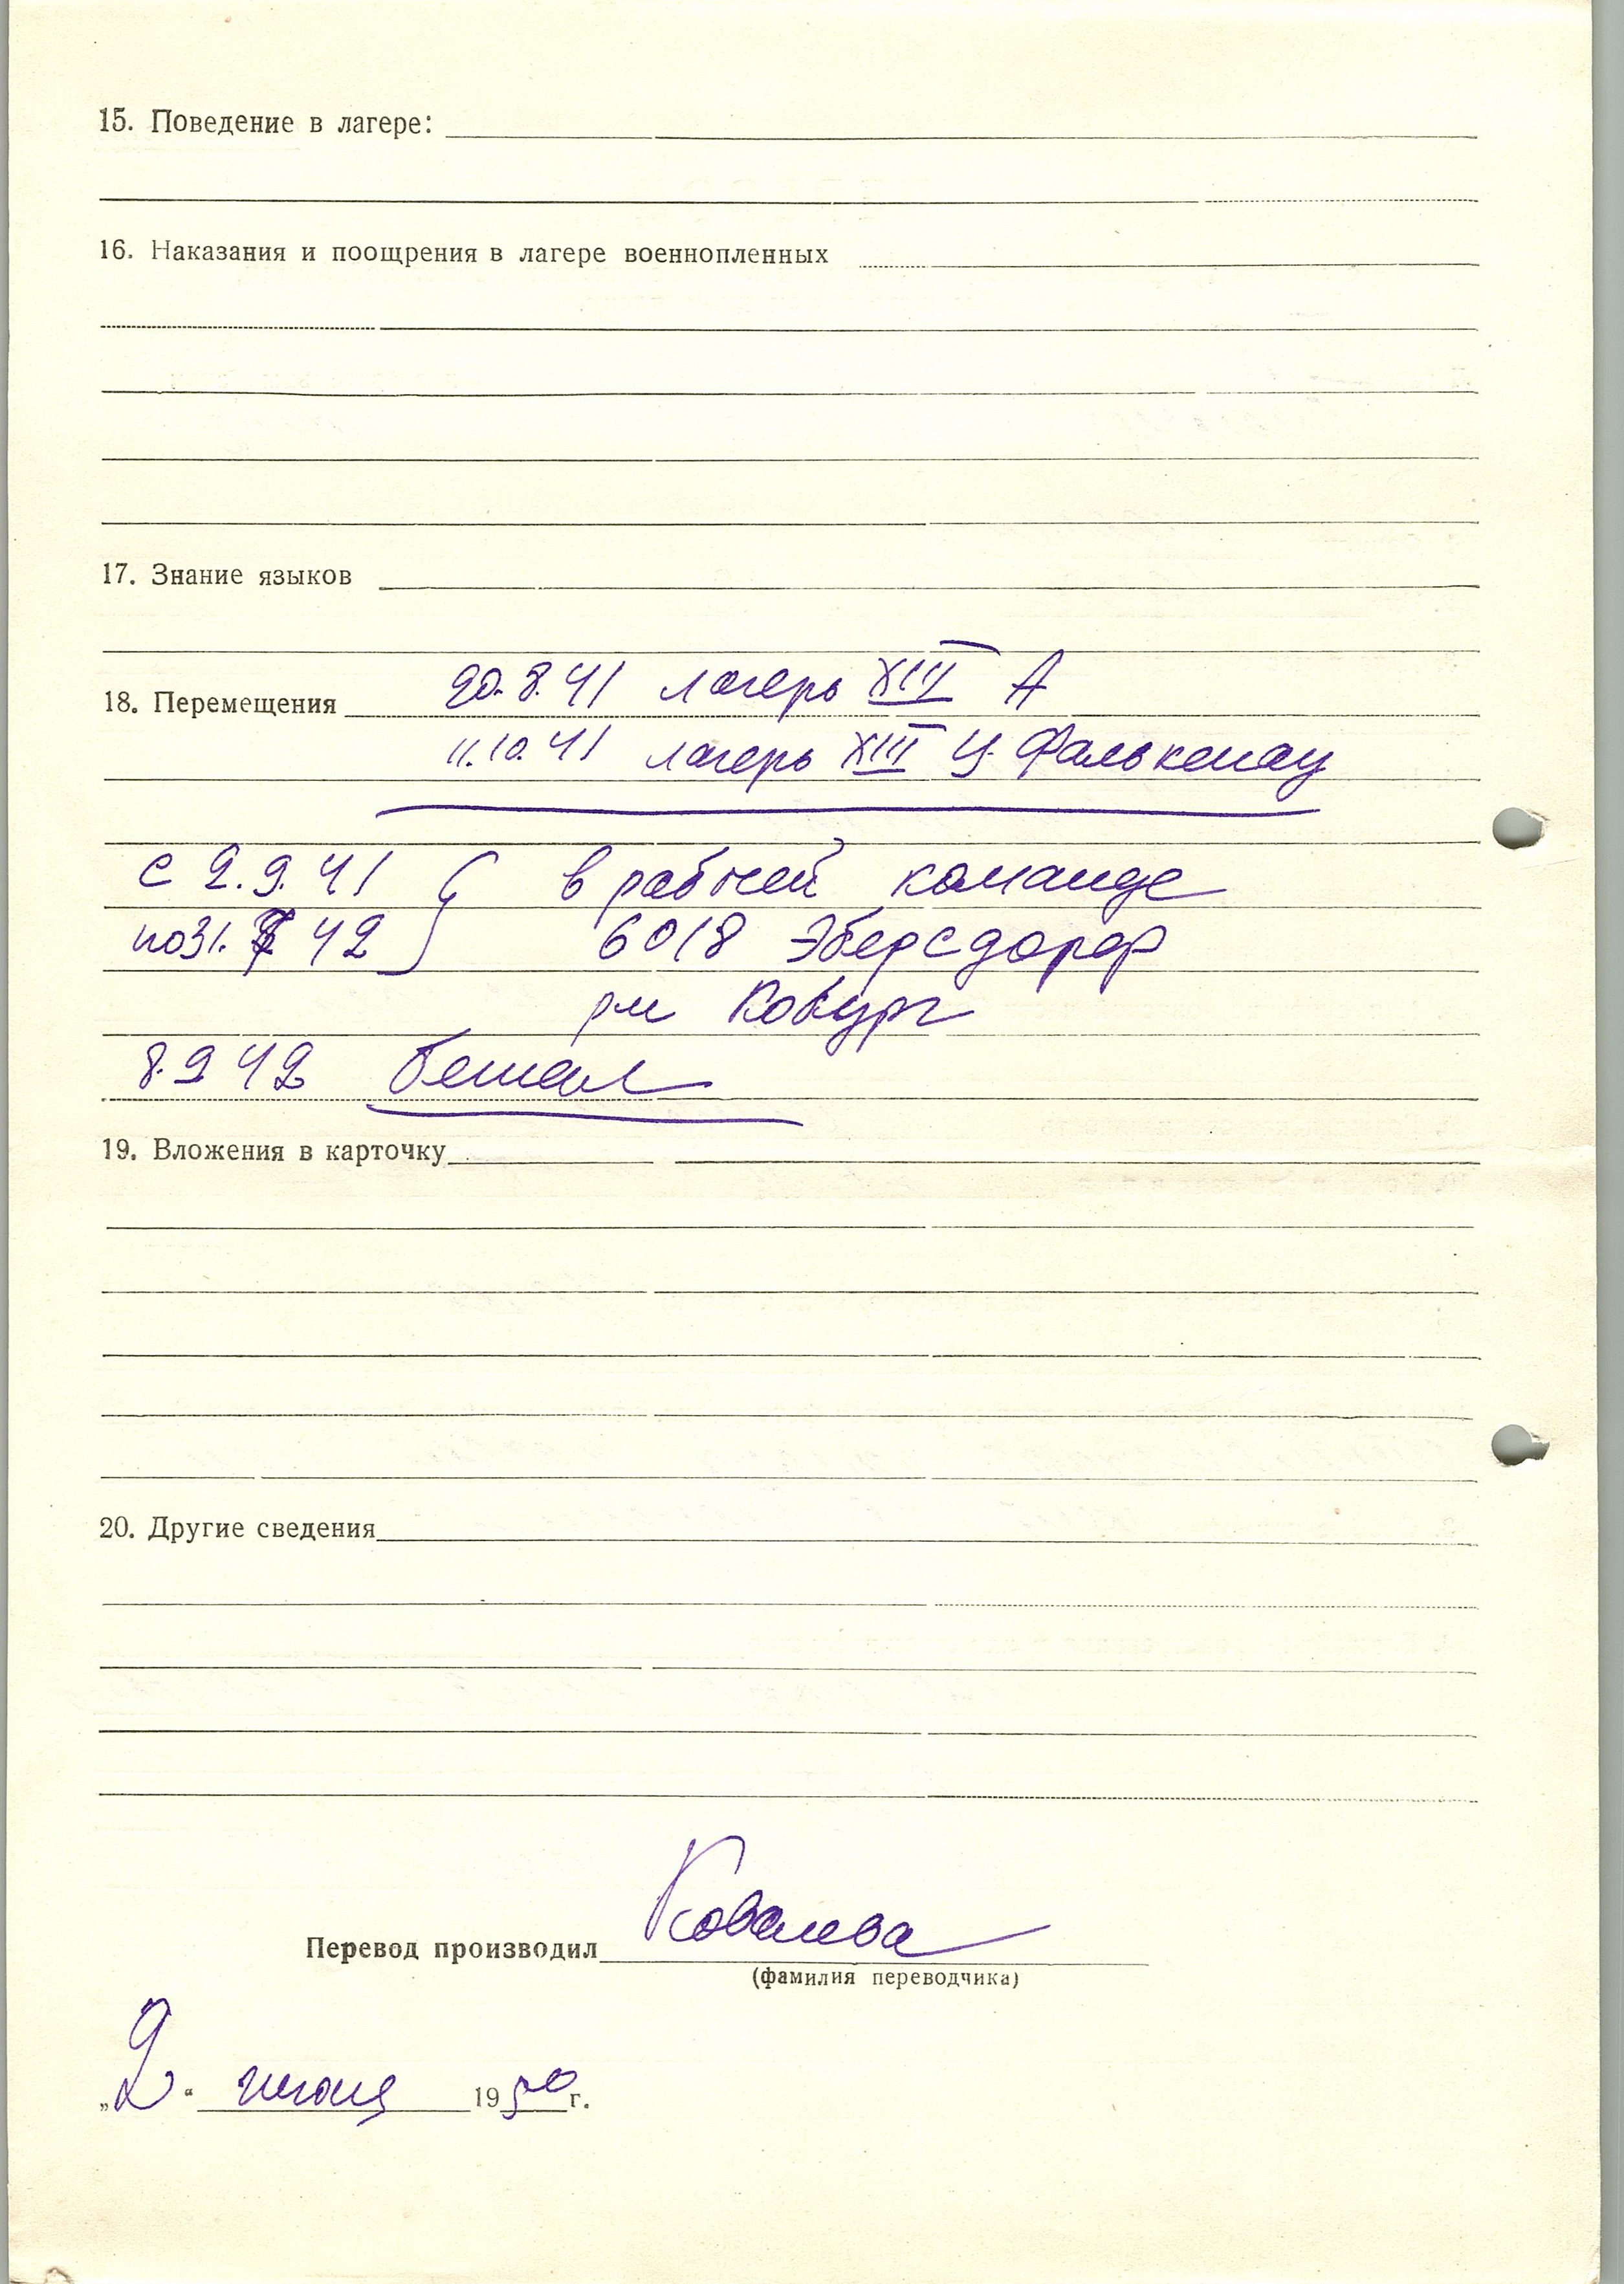 15. Поведение в лагере:
16. Наказания и поощрения в лагере военнопленных
17. Знание языков
20.8.41 лагерь XIII А
18. Перемещения
11.10.41 лагерь XIII Ц Фалькенау
с 2.9.41 в рабочей команде
по 31. 42 6018 Эберсдорф
Кобург
8.9 42 бежал
19. Вложения в карточку
20. Другие сведения
Перевод производил Ковалева
(фамилия переводчика)
„2“ июня 1950 г.